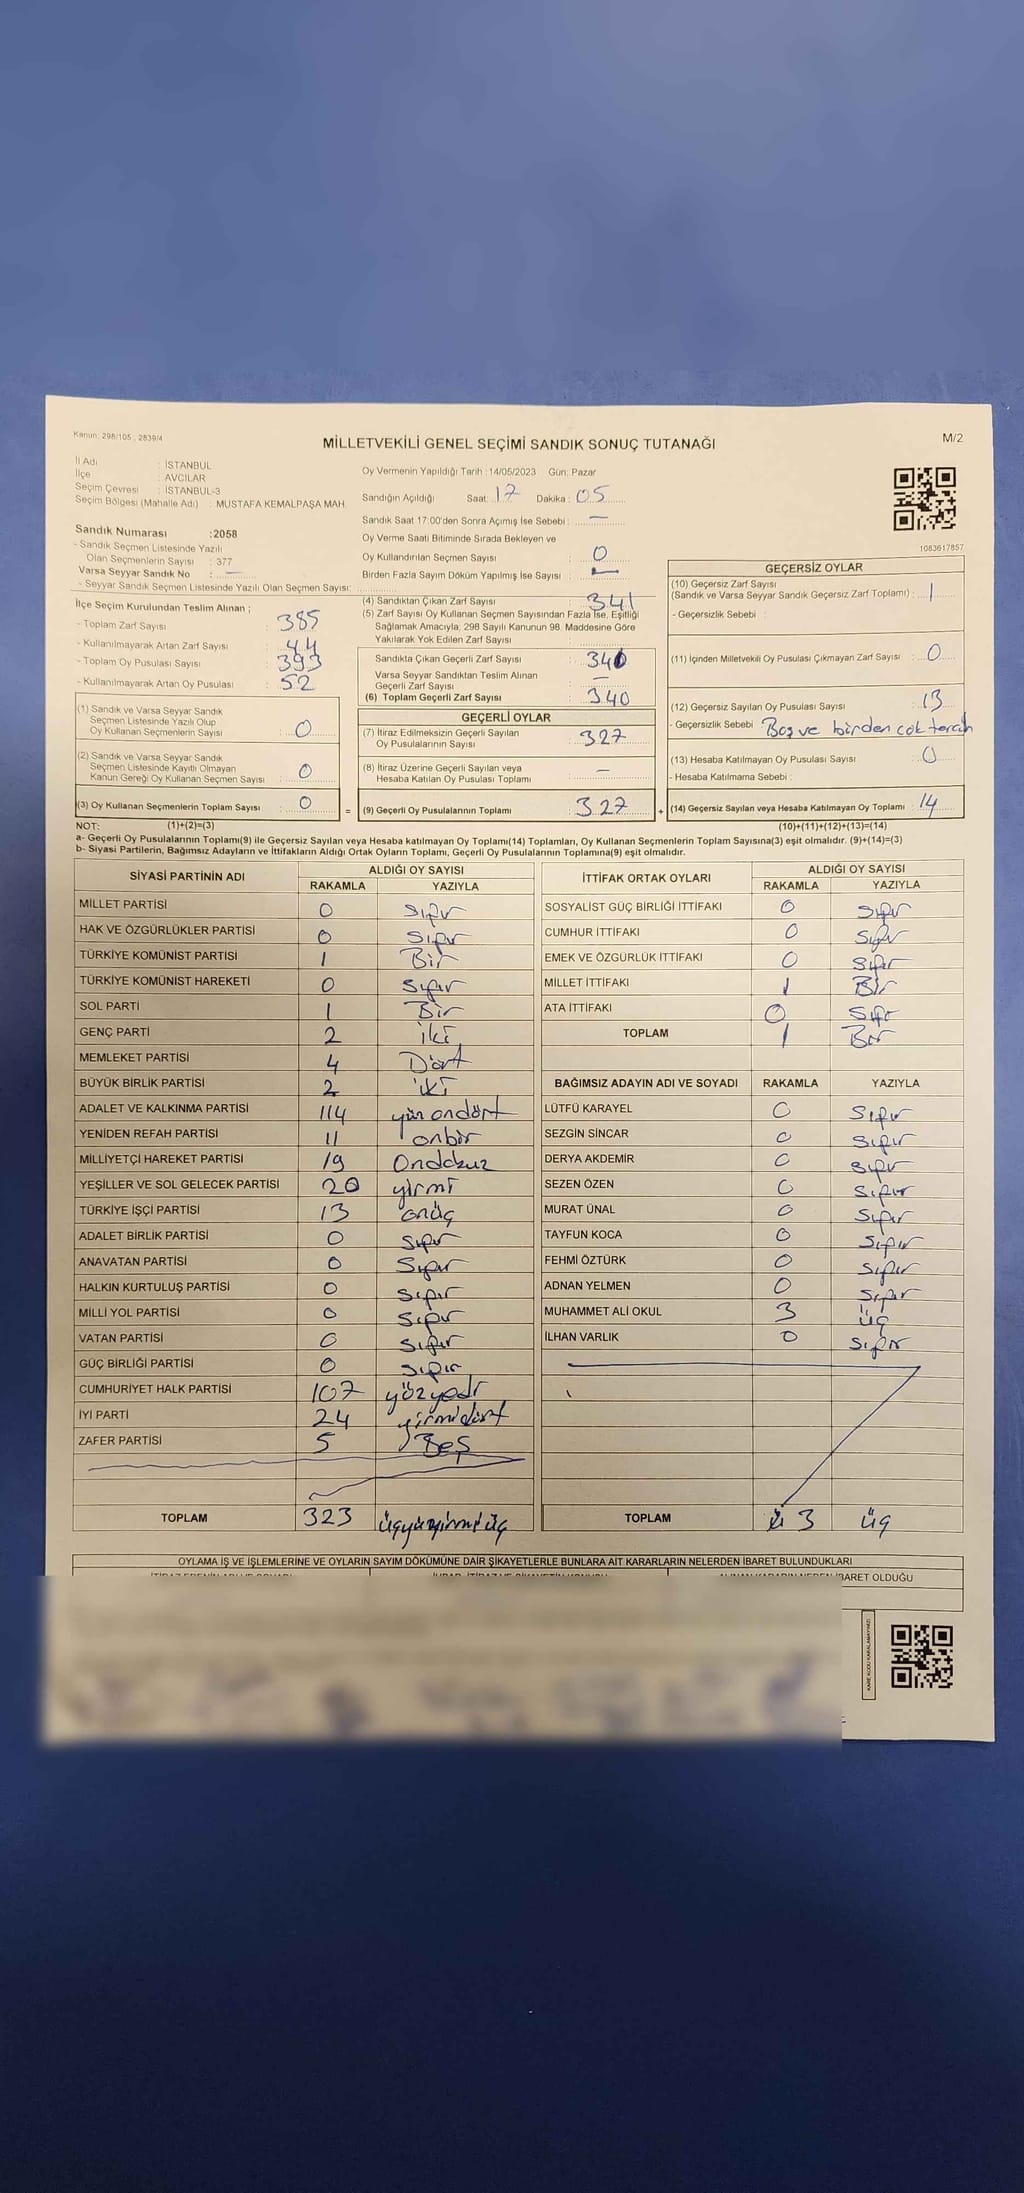 Kanun: 298/105 , 2839/4
MİLLETVEKİLİ GENEL SEÇİMİ SANDIK SONUÇ TUTANAĞI
M/2
İl Adı : İSTANBUL
İlçe : AVCILAR
Seçim Çevresi : İSTANBUL-3
Seçim Bölgesi (Mahalle Adı) : MUSTAFA KEMALPAŞA MAH.
Sandık Numarası :2058
- Sandık Seçmen Listesinde Yazılı
Olan Seçmenlerin Sayısı : 377
Varsa Seyyar Sandık No : —
- Seyyar Sandık Seçmen Listesinde Yazılı Olan Seçmen Sayısı:
İlçe Seçim Kurulundan Teslim Alınan ;
- Toplam Zarf Sayısı : 385
- Kullanılmayarak Artan Zarf Sayısı : 44
- Toplam Oy Pusulası Sayısı : 393
- Kullanılmayarak Artan Oy Pusulası : 52
(1) Sandık ve Varsa Seyyar Sandık
Seçmen Listesinde Yazılı Olup
Oy Kullanan Seçmenlerin Sayısı : 0
(2) Sandık ve Varsa Seyyar Sandık
Seçmen Listesinde Kayıtlı Olmayan
Kanun Gereği Oy Kullanan Seçmen Sayısı : 0
(3) Oy Kullanan Seçmenlerin Toplam Sayısı : 0
Oy Vermenin Yapıldığı Tarih :14/05/2023 Gün: Pazar
Sandığın Açıldığı Saat: 17 Dakika : 05
Sandık Saat 17:00'den Sonra Açımış İse Sebebi : —
Oy Verme Saati Bitiminde Sırada Bekleyen ve
Oy Kullandırılan Seçmen Sayısı : 0
Birden Fazla Sayım Döküm Yapılmış İse Sayısı : —
(4) Sandıktan Çıkan Zarf Sayısı : 341
(5) Zarf Sayısı Oy Kullanan Seçmen Sayısından Fazla İse, Eşitliği
Sağlamak Amacıyla; 298 Sayılı Kanunun 98. Maddesine Göre
Yakılarak Yok Edilen Zarf Sayısı :
Sandıkta Çıkan Geçerli Zarf Sayısı : 340
Varsa Seyyar Sandıktan Teslim Alınan
Geçerli Zarf Sayısı : —
(6) Toplam Geçerli Zarf Sayısı : 340
GEÇERLİ OYLAR
(7) İtiraz Edilmeksizin Geçerli Sayılan
Oy Pusulalarının Sayısı : 327
(8) İtiraz Üzerine Geçerli Sayılan veya
Hesaba Katılan Oy Pusulası Toplamı : —
= (9) Geçerli Oy Pusulalarının Toplamı : 327
1083617857
GEÇERSİZ OYLAR
(10) Geçersiz Zarf Sayısı
(Sandık ve Varsa Seyyar Sandık Geçersiz Zarf Toplamı) : 1
- Geçersizlik Sebebi :
(11) İçinden Milletvekili Oy Pusulası Çıkmayan Zarf Sayısı : 0
(12) Geçersiz Sayılan Oy Pusulası Sayısı : 13
- Geçersizlik Sebebi Boş ve birden çok tercih
(13) Hesaba Katılmayan Oy Pusulası Sayısı : 0
- Hesaba Katılmama Sebebi :
+ (14) Geçersiz Sayılan veya Hesaba Katılmayan Oy Toplamı : 14
NOT: (1)+(2)=(3) (10)+(11)+(12)+(13)=(14)
a- Geçerli Oy Pusulalarının Toplamı(9) ile Geçersiz Sayılan veya Hesaba katılmayan Oy Toplamı(14) Toplamları, Oy Kullanan Seçmenlerin Toplam Sayısına(3) eşit olmalıdır. (9)+(14)=(3)
b- Siyasi Partilerin, Bağımsız Adayların ve İttifakların Aldığı Ortak Oyların Toplamı, Geçerli Oy Pusulalarının Toplamına(9) eşit olmalıdır.
SİYASİ PARTİNİN ADI ALDIĞI OY SAYISI
RAKAMLA YAZIYLA
MİLLET PARTİSİ 0 sıfır
HAK VE ÖZGÜRLÜKLER PARTİSİ 0 sıfır
TÜRKİYE KOMÜNİST PARTİSİ 1 Bir
TÜRKİYE KOMÜNİST HAREKETİ 0 sıfır
SOL PARTİ 1 Bir
GENÇ PARTİ 2 iki
MEMLEKET PARTİSİ 4 Dört
BÜYÜK BİRLİK PARTİSİ 2 iki
ADALET VE KALKINMA PARTİSİ 114 yüz ondört
YENİDEN REFAH PARTİSİ 11 onbir
MİLLİYETÇİ HAREKET PARTİSİ 19 Ondokuz
YEŞİLLER VE SOL GELECEK PARTİSİ 20 yirmi
TÜRKİYE İŞÇİ PARTİSİ 13 onüç
ADALET BİRLİK PARTİSİ 0 sıfır
ANAVATAN PARTİSİ 0 sıfır
HALKIN KURTULUŞ PARTİSİ 0 sıfır
MİLLİ YOL PARTİSİ 0 sıfır
VATAN PARTİSİ 0 sıfır
GÜÇ BİRLİĞİ PARTİSİ 0 sıfır
CUMHURİYET HALK PARTİSİ 107 yüzyedi
İYİ PARTİ 24 yirmidört
ZAFER PARTİSİ 5 Beş
TOPLAM 323 üçyüzyirmiüç
İTTİFAK ORTAK OYLARI ALDIĞI OY SAYISI
RAKAMLA YAZIYLA
SOSYALİST GÜÇ BİRLİĞİ İTTİFAKI 0 sıfır
CUMHUR İTTİFAKI 0 sıfır
EMEK VE ÖZGÜRLÜK İTTİFAKI 0 sıfır
MİLLET İTTİFAKI 1 Bir
ATA İTTİFAKI 0 sıfır
TOPLAM 1 Bir
BAĞIMSIZ ADAYIN ADI VE SOYADI RAKAMLA YAZIYLA
LÜTFÜ KARAYEL 0 sıfır
SEZGİN SİNCAR 0 sıfır
DERYA AKDEMİR 0 sıfır
SEZEN ÖZEN 0 sıfır
MURAT ÜNAL 0 sıfır
TAYFUN KOCA 0 sıfır
FEHMİ ÖZTÜRK 0 sıfır
ADNAN YELMEN 0 sıfır
MUHAMMET ALİ OKUL 3 üç
İLHAN VARLIK 0 sıfır
TOPLAM 3 üç
OYLAMA İŞ VE İŞLEMLERİNE VE OYLARIN SAYIM DÖKÜMÜNE DAİR ŞİKAYETLERLE BUNLARA AİT KARARLARIN NELERDEN İBARET BULUNDUKLARI
İBARET OLDUĞU